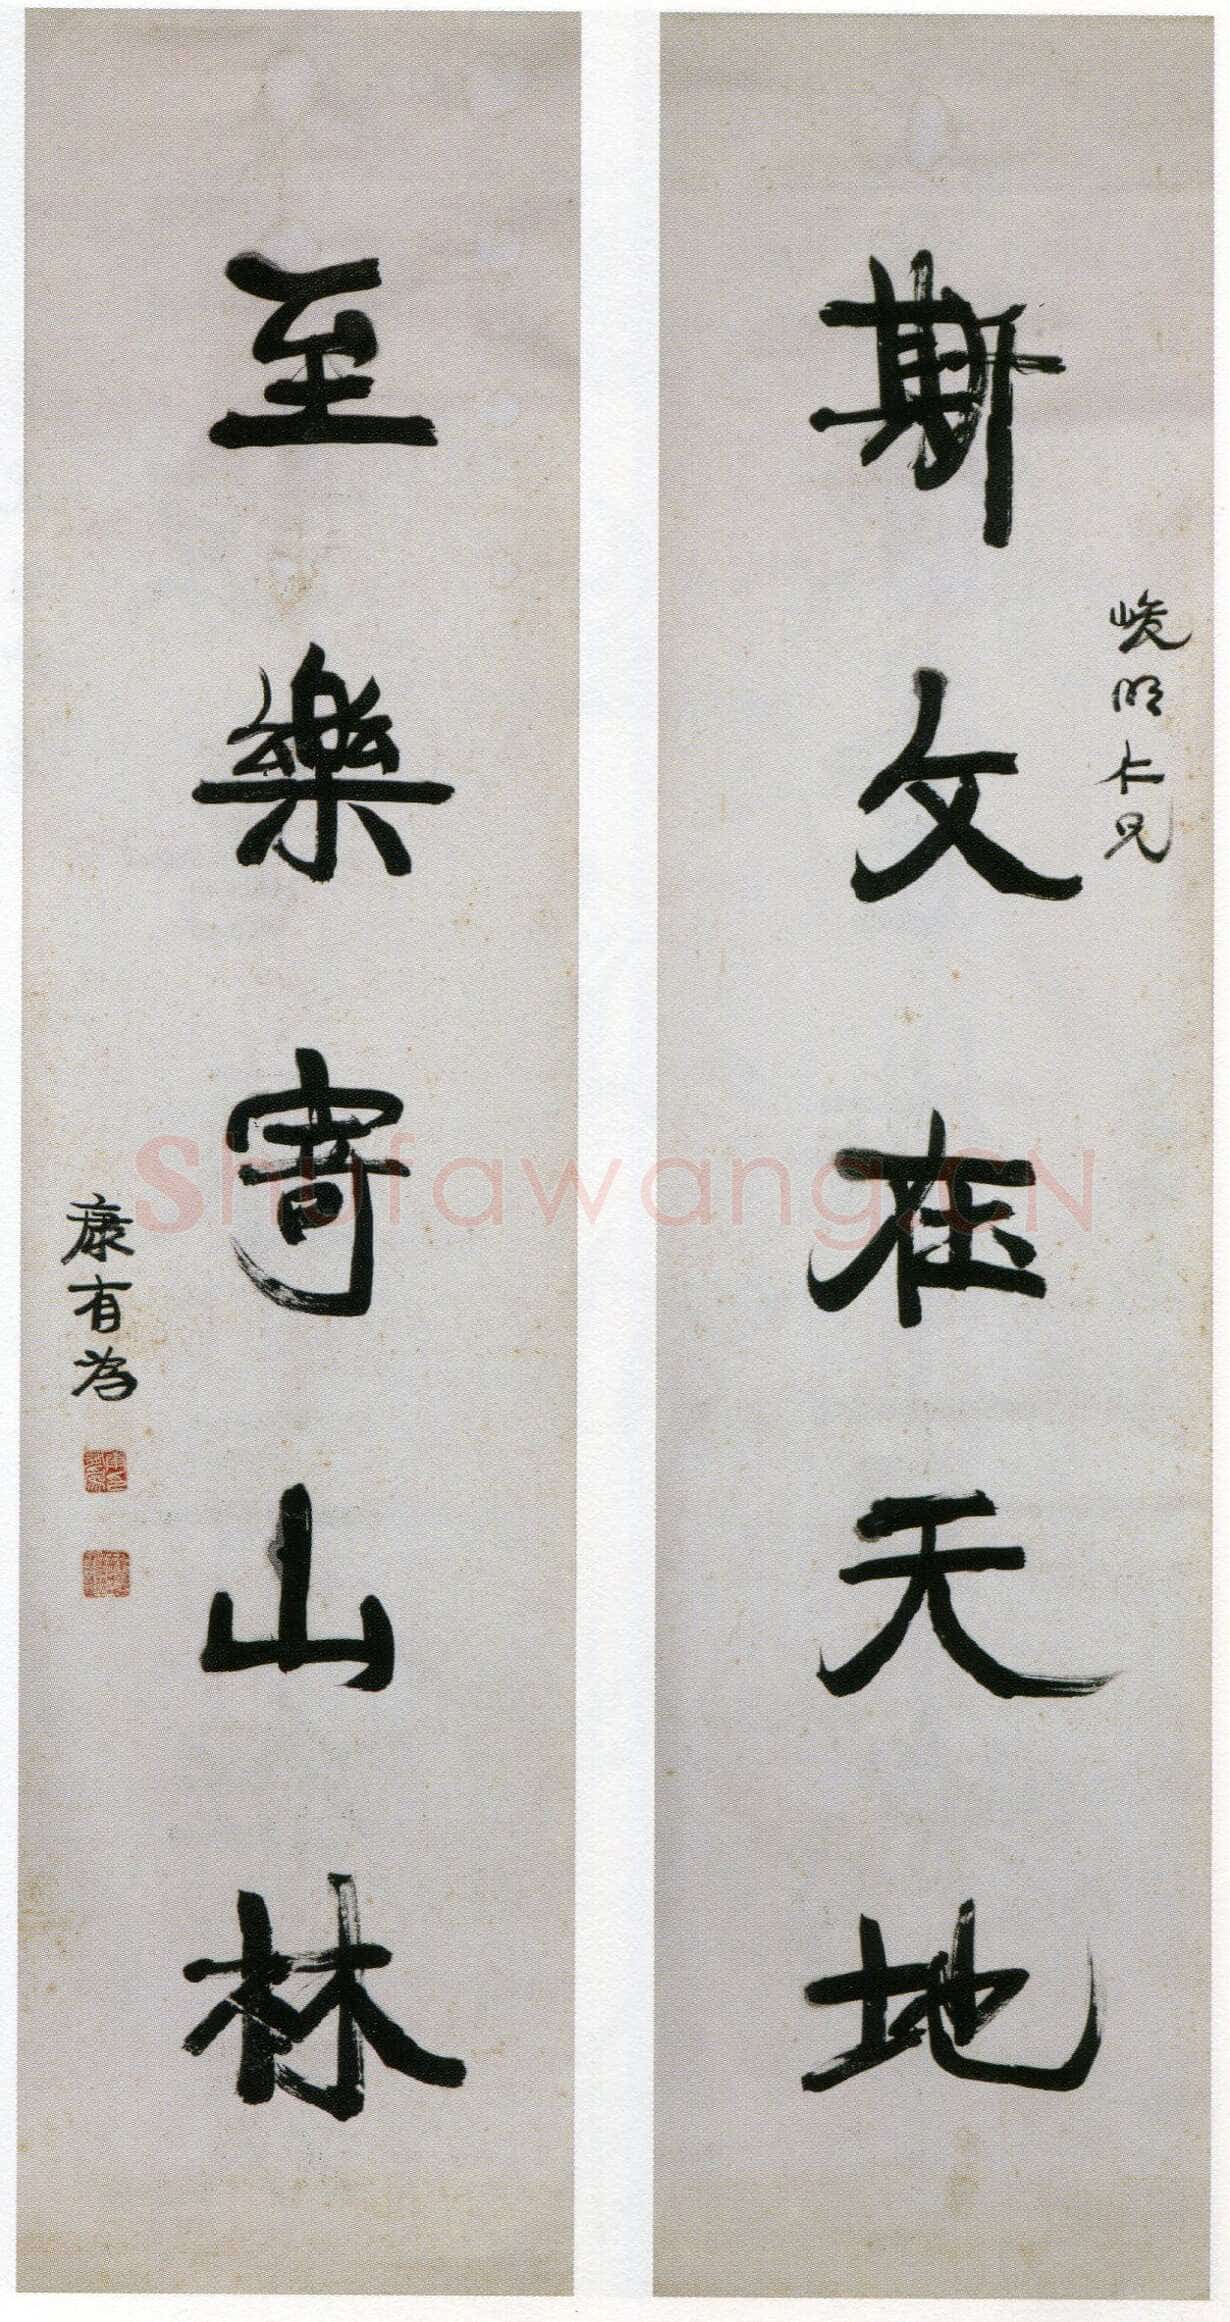 斯文在天地
峻明仁兄
至樂寄山林
康有為
Shufawang.CN